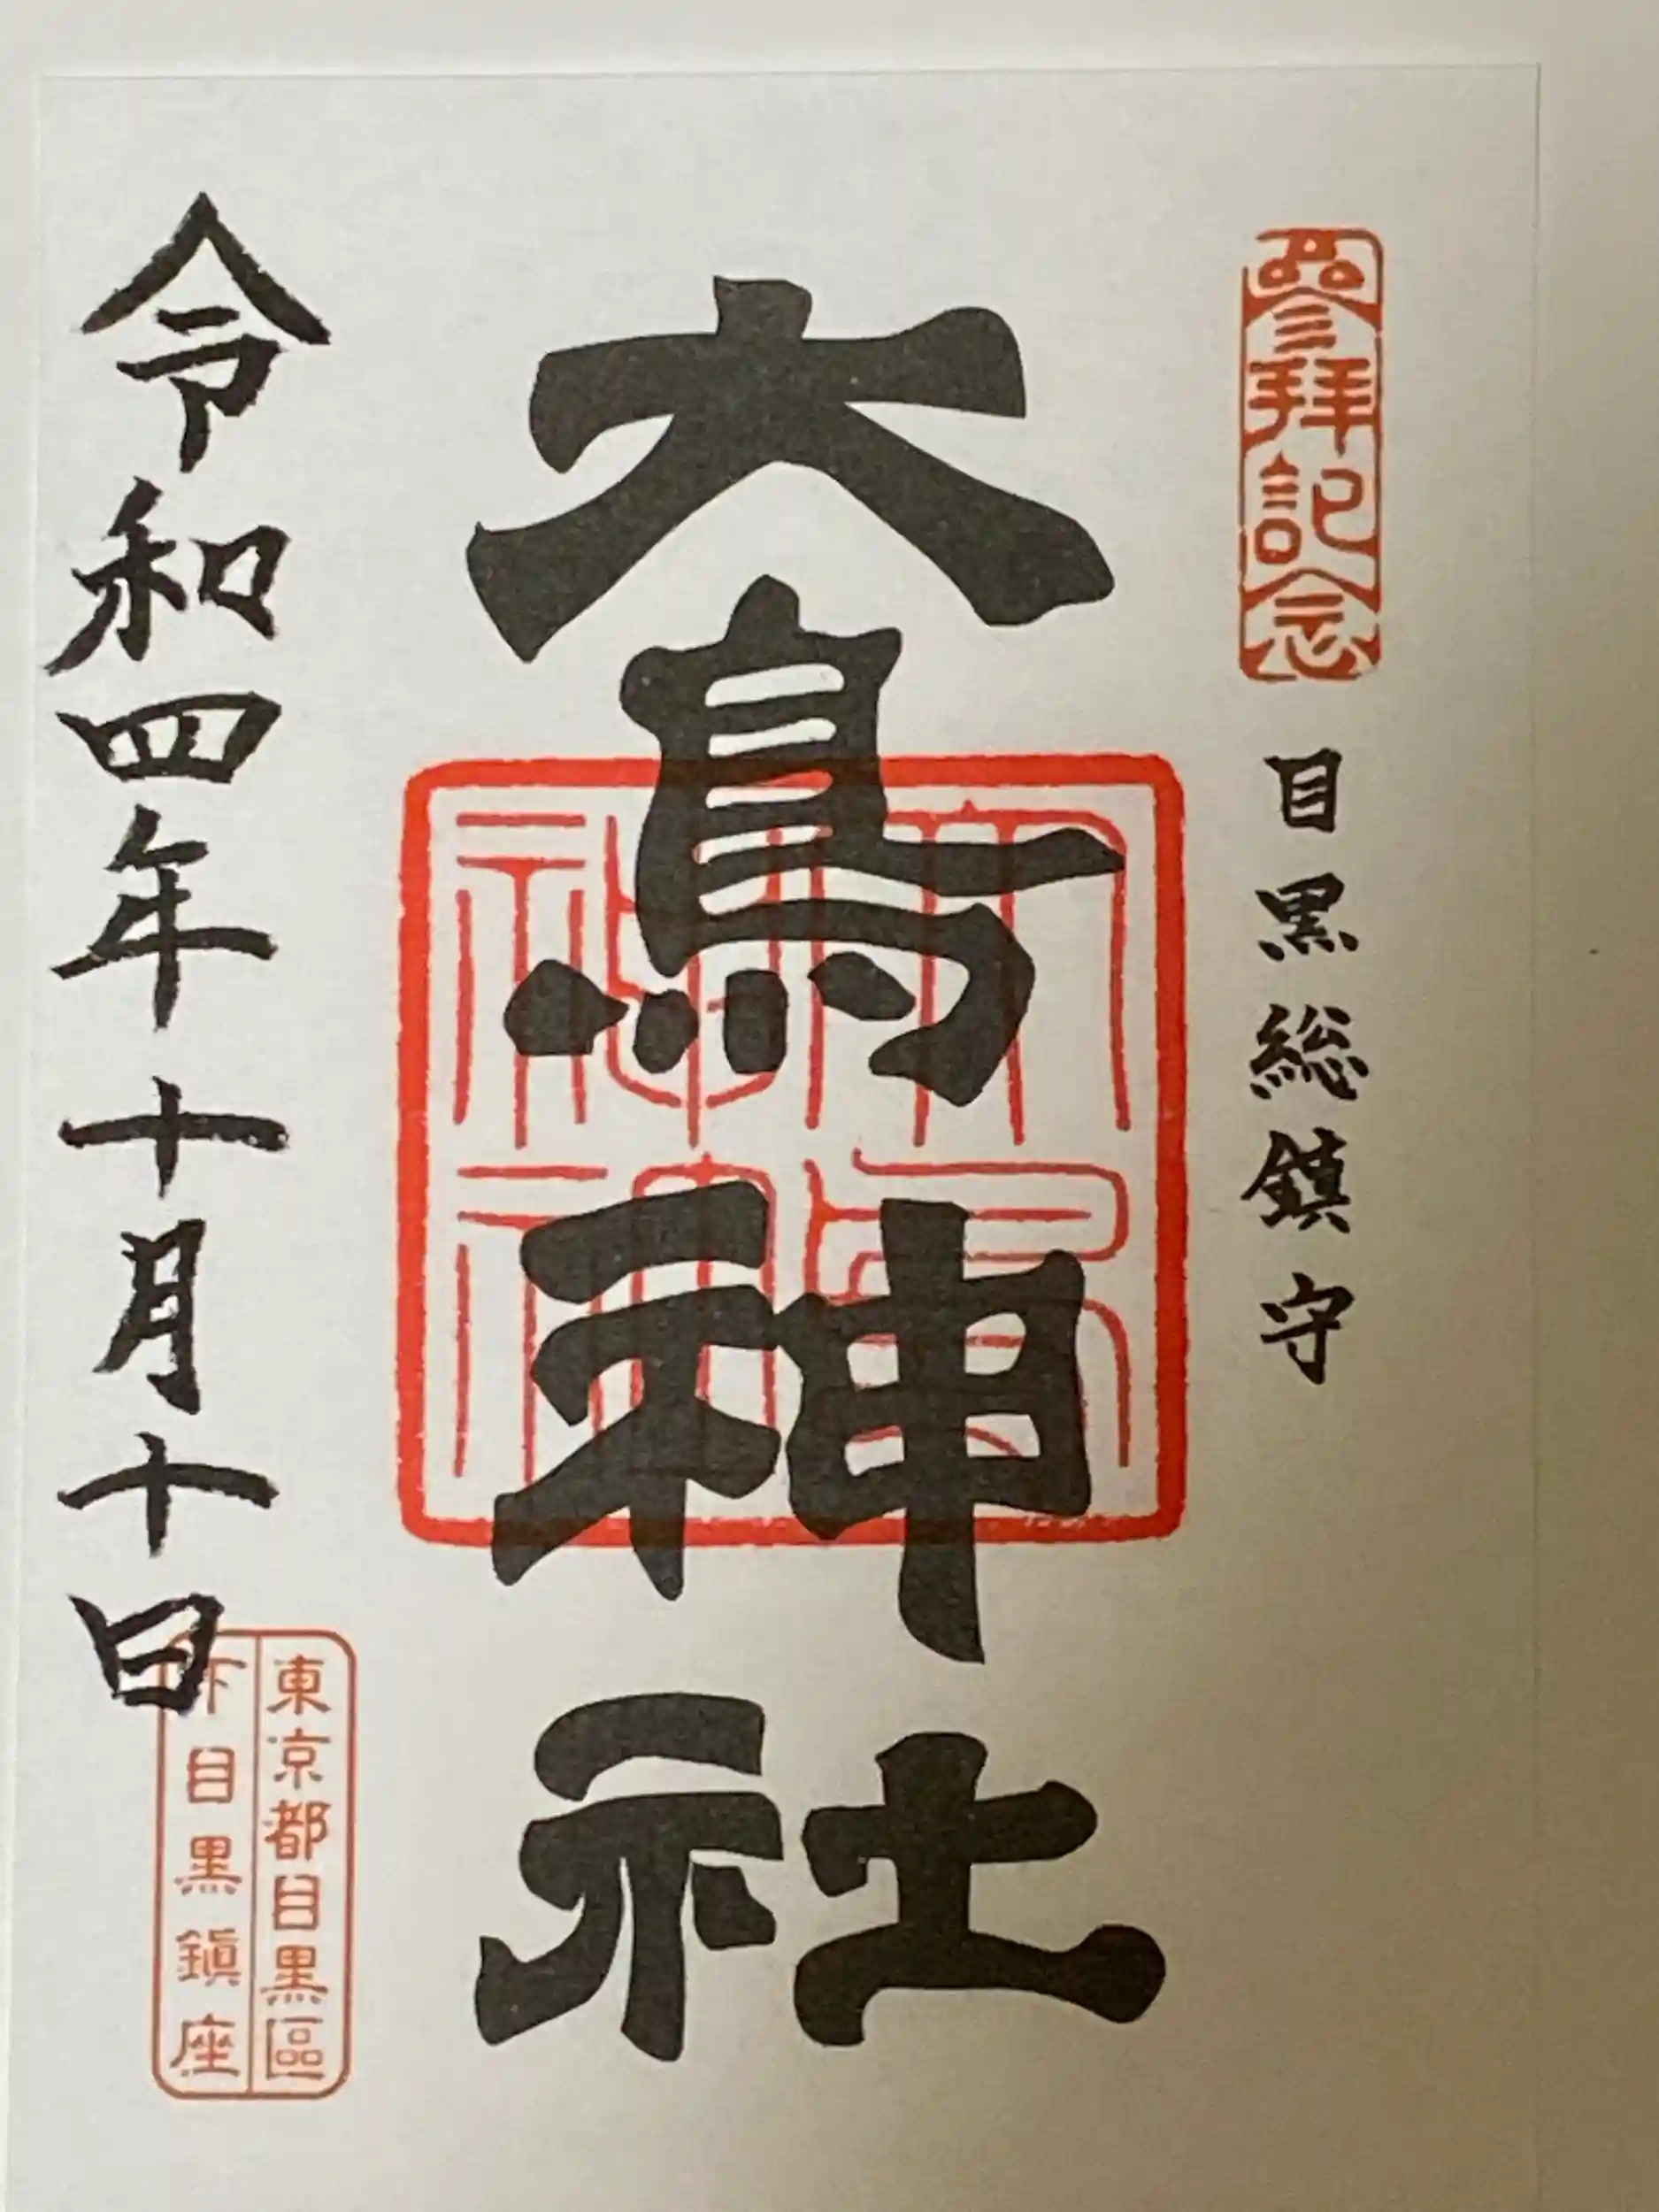 参拝記念
目黒総鎮守
大鳥神社
令和四年十月十日
東京都目黒區
下目黒鎮座